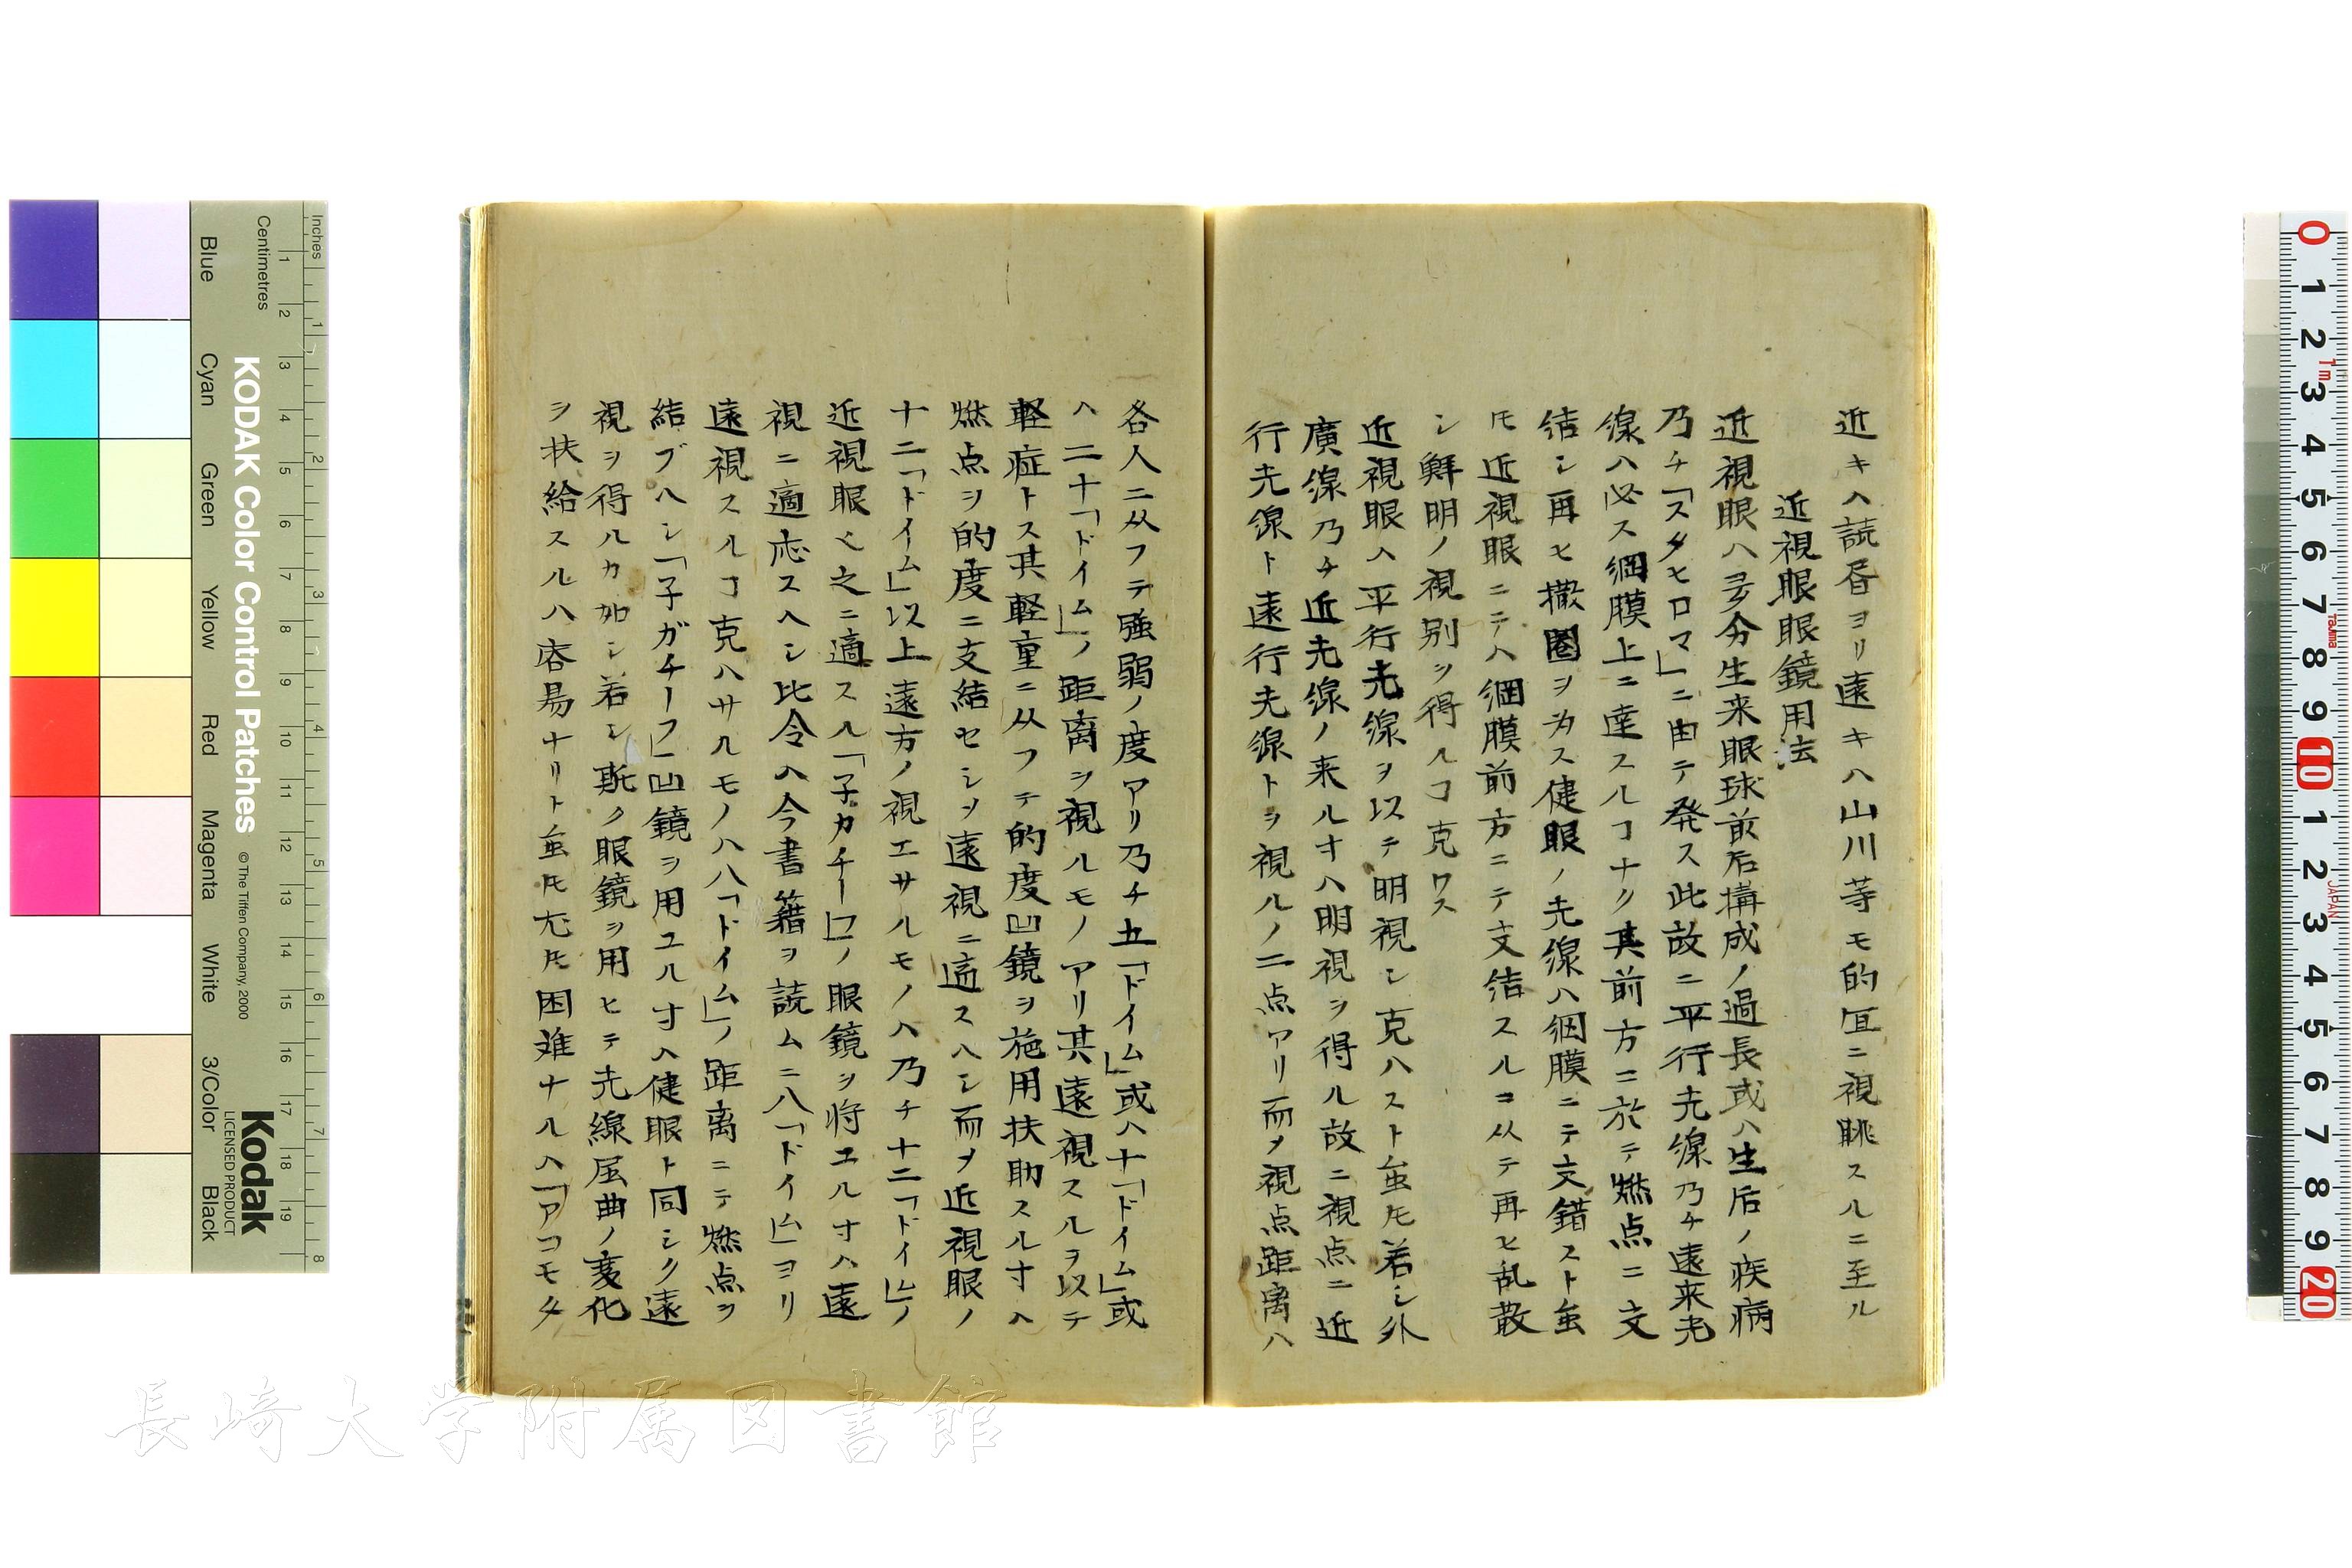 近キハ読書ヨリ遠キハ山川等モ的宜ニ視眺スルニ至ル
近視眼眼鏡用法
近視眼ハ多分生来眼球前后構成ノ過長或ハ生后ノ疾病
乃チ「スタヒロマ」ニ由テ発ス此故ニ平行光線乃チ遠来光
線ハ必ス網膜上ニ達スルヿナク其前方ニ於テ燃点ニ交
結シ再ヒ撒圏ヲ為ス健眼ノ光線ハ網膜ニテ交錯スト虽
𪜈近視眼ニテハ網膜前方ニテ交結スルヿ以テ再ヒ乱散
シ鮮明ノ視別ヲ得ルヿ克ワス
近視眼ハ平行光線ヲ以テ明視シ克ハスト虽𪜈若シ外
廣線乃チ近光線ノ来ル寸ハ明視ヲ得ル故ニ視点ニ近
行光線ト遠行光線トヲ視ルノ二点アリ而メ視点距离ハ
各人ニ从フテ強弱ノ度アリ乃チ五「ドイム」或ハ十「ドイム」或
ハ二十「ドイム」ノ距离ヲ視ルモノアリ其遠視スルヲ以テ
軽症トス其軽重ニ从フテ的度凹鏡ヲ施用扶助スル寸ハ
燃点ヲ的度ニ支結セシヲ遠視ニ適スヘシ而メ近視眼ノ
十二「ドイム」以上遠方ノ視エサルモノハ乃チ十二「ドイム」ノ
近視眼ㇳ之ニ適スル「子カチーフ」ノ眼鏡ヲ将エル寸ハ遠
視ニ適応スヘシ比令ハ今書籍ヲ読ムニ八「ドイム」ヨリ
遠視スルヿ克ハサルモノハ八「ドイム」ノ距离ニテ燃点ヲ
結ブヘシ「子ガチーフ」凹鏡ヲ用ユル寸ハ健眼ト同シク遠
視ヲ得ルカ如シ若シ斯ノ眼鏡ヲ用ヒテ光線屈曲ノ変化
ヲ扶給スルハ容易ナリト虽𪜈尤𪜈困难ナルハ「アコモタ
KODAK Color Control Patches
©The Tiffen Company, 2000
Kodak
LICENSED PRODUCT
Inches
Centimetres
Blue
Cyan
Green
Yellow
Red
Magenta
White
3/Color
Black
長崎大学附属図書館